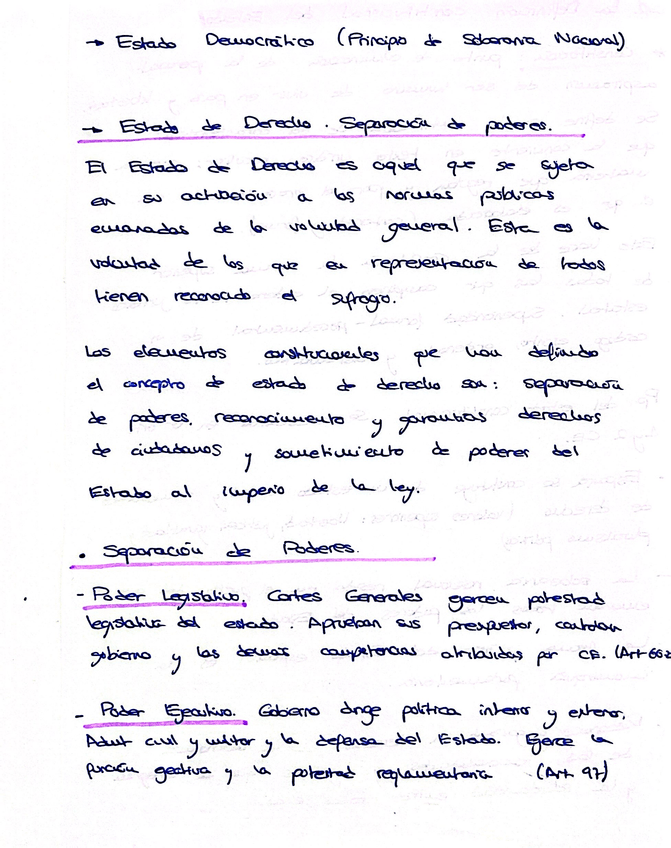 → Estado Democrático (Principio de Soberanía Nacional)
→ Estado de Derecho. Separación de poderes.
El Estado de Derecho es aquel que se sujeta
en su actuación a las normas públicas
emanadas de la voluntad general. Esta es la
voluntad de los que en representación de todos
tienen reconocido el sufragio.
Los elementos constitucionales que han definido
el concepto de estado de derecho son: separación
de poderes, reconocimiento y garantías derechos
de ciudadanos y sometimiento de poderes del
Estado al imperio de la ley.
• Separación de Poderes.
- Poder Legislativo. Cortes Generales ejercen potestad
legislativa del estado. Aprueban sus presupuestos, controlan
gobierno y las demás competencias atribuidas por CE. (Art 66.2
- Poder Ejecutivo. Gobierno dirige política interior y exterior.
Admt civil y militar y la defensa del Estado. Ejerce la
función ejecutiva y la potestad reglamentaria (Art 97)